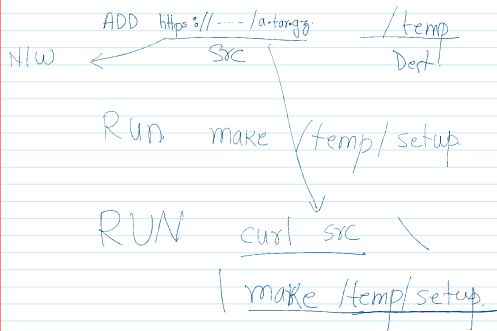 ADD https://----/a.tar.gz. /temp
N/W Src Dest!
Run make /temp/setup
RUN curl src \
| make /temp/setup.